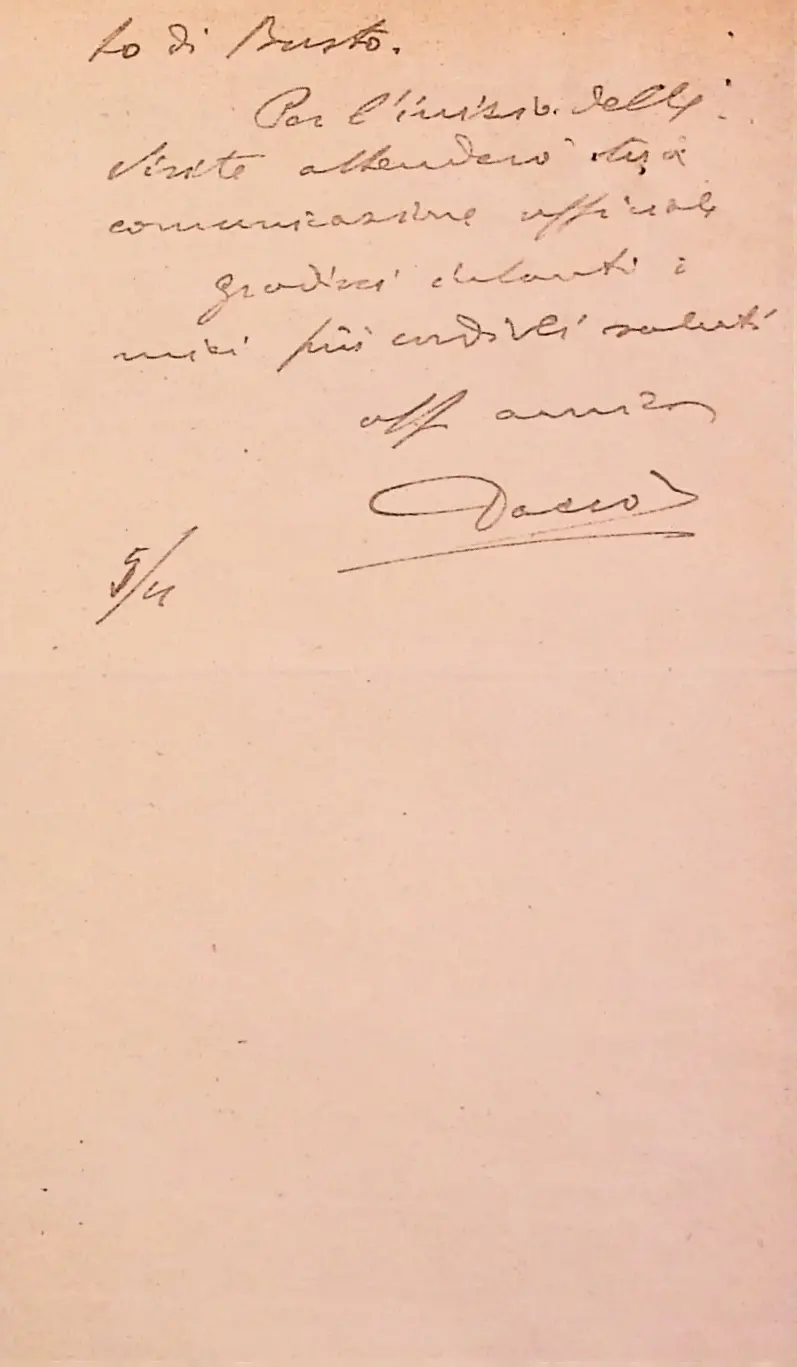 to di Busto.
Per l'inizio delle
visite attenderò tua
comunicazione ufficiale
gradisci intanto i
miei più cordiali saluti
aff amico
5/4